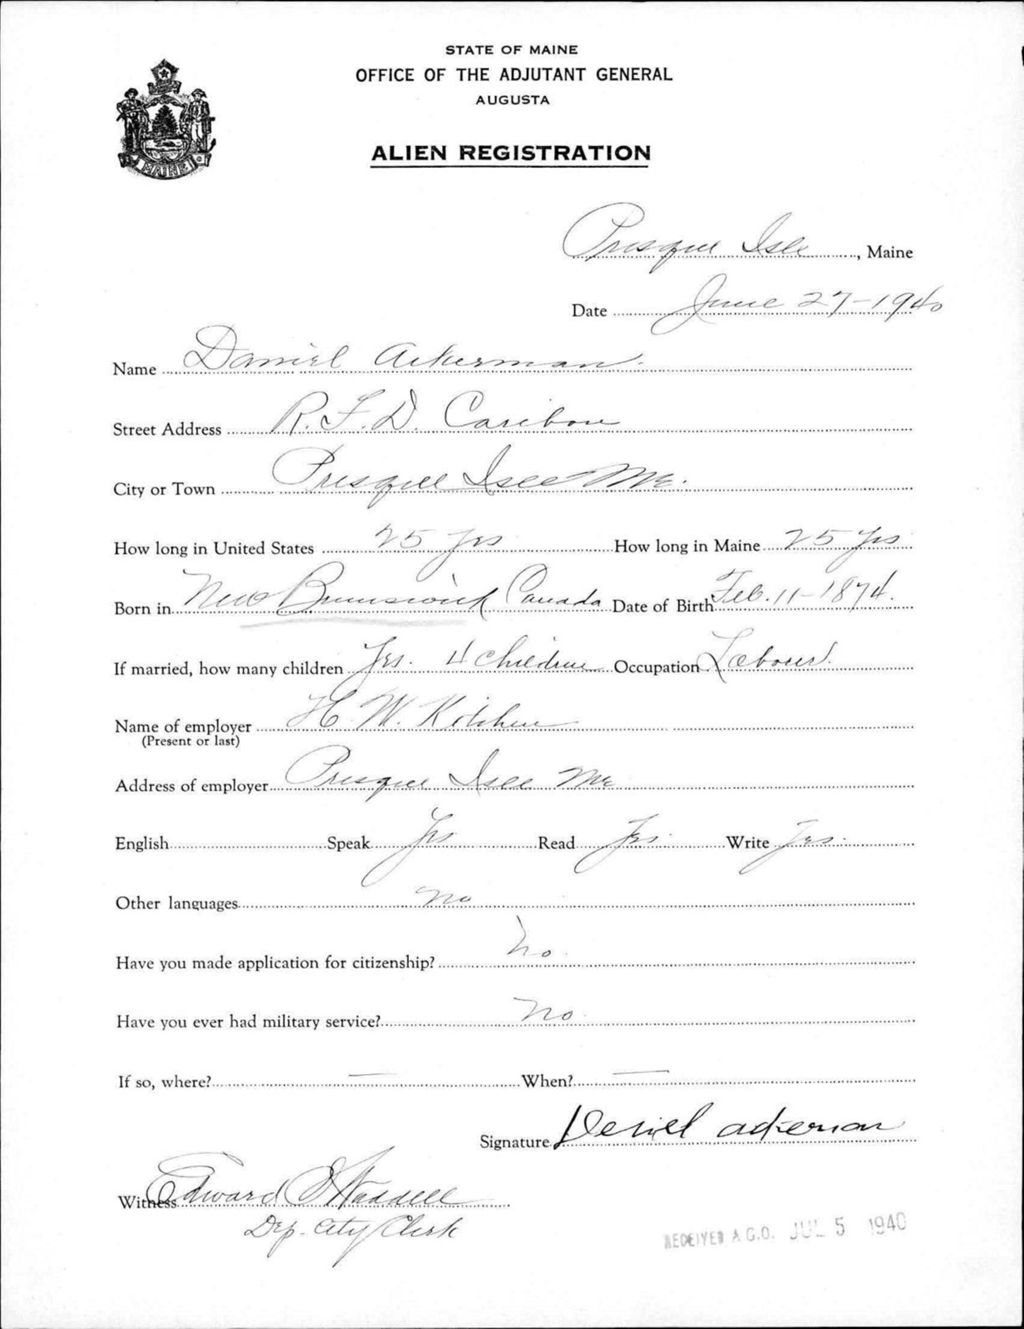 STATE OF MAINE
OFFICE OF THE ADJUTANT GENERAL
AUGUSTA
ALIEN REGISTRATION
MAINE
Presque Isle, Maine
Date June 27-1940
Name Daniel Ackerman
Street Address R.F.D. Caribou
City or Town Presque Isle Me.
How long in United States 25 yrs How long in Maine 25 yrs
Born in New Brunswick Canada Date of Birth Feb. 11-1874.
If married, how many children Yes. 4 children Occupation Labourer
Name of employer H. W. Kitchen
(Present or last)
Address of employer Presque Isle Me
English Speak Yes Read Yes. Write Yes.
Other languages no
Have you made application for citizenship? No.
Have you ever had military service? No.
If so, where? — When? —
Signature Deniel ackerman
Witness Edward Waddell
Dep. City Clerk
RECEIVED A.G.O. JUL 5 1940